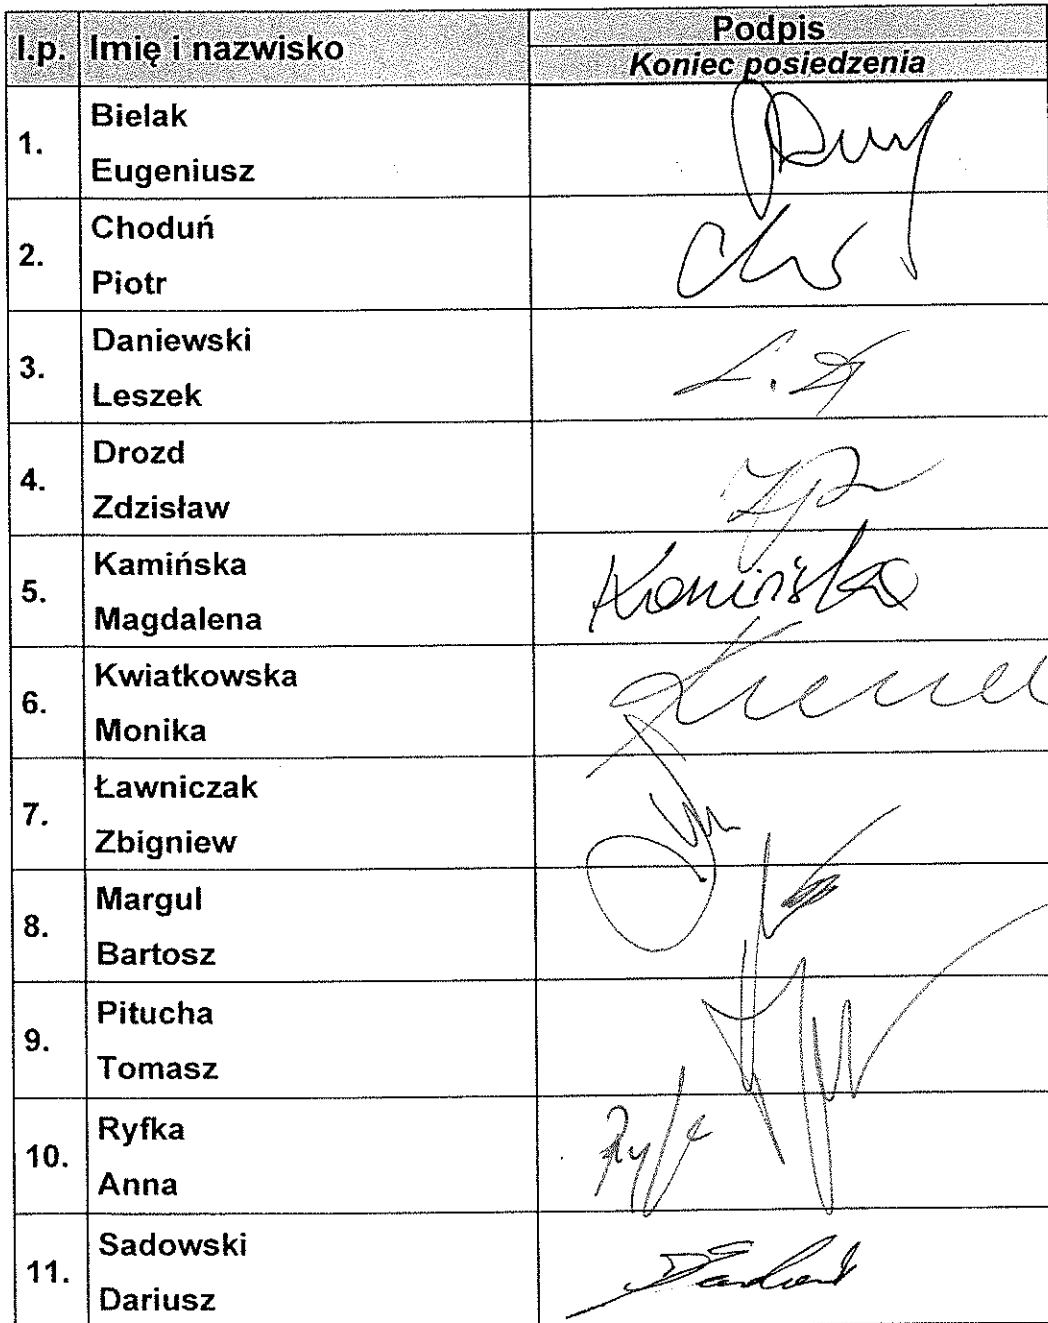 l.p. Imię i nazwisko Podpis
Koniec posiedzenia
1. Bielak
Eugeniusz
2. Choduń
Piotr
3. Daniewski
Leszek
4. Drozd
Zdzisław
5. Kamińska
Magdalena
Kamińska
6. Kwiatkowska
Monika
7. Ławniczak
Zbigniew
8. Margul
Bartosz
9. Pitucha
Tomasz
10. Ryfka
Anna
11. Sadowski
Dariusz